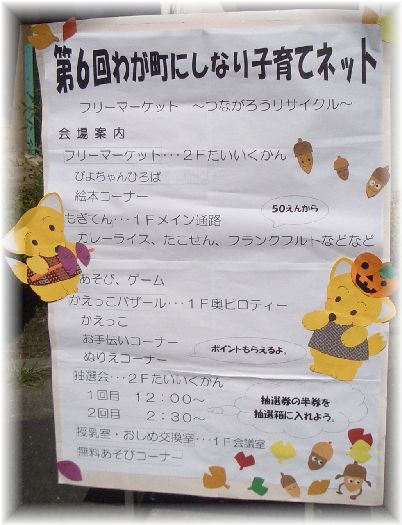 第6回わが町にしなり子育てネット
フリーマーケット ～つながろうリサイクル～
会場案内
フリーマーケット・・・2Fたいいくかん
ぴよちゃんひろば
絵本コーナー
もぎてん・・・1Fメイン通路
50えんから
カレーライス、たこせん、フランクフルトなどなど
あそび、ゲーム
かえっこバザール・・・1F奥ピロティー
かえっこ
お手伝いコーナー
ポイントもらえるよ。
ぬりえコーナー
抽選会・・・2Fたいいくかん
1回目 12:00～
2回目 2:30～
抽選券の半券を
抽選箱に入れよう。
授乳室・おしめ交換室・・・1F会議室
無料あそびコーナー